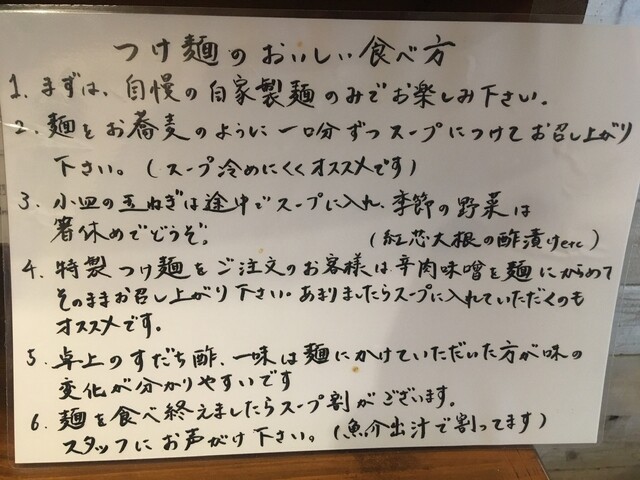 つけ麺のおいしい食べ方
1. まずは、自慢の自家製麺のみでお楽しみ下さい。
2. 麺をお蕎麦のように一口分ずつスープにつけてお召し上がり
下さい。(スープ冷めにくくオススメです)
3. 小皿の玉ねぎは途中でスープに入れ、季節の野菜は
箸休めでどうぞ。 (紅芯大根の酢漬けetc)
4. 特製つけ麺をご注文のお客様は辛肉味噌を麺にからめて
そのままお召し上がり下さい。あまりましたらスープに入れていただくのも
オススメです。
5. 卓上のすだち酢、一味は麺にかけていただいた方が味の
変化が分かりやすいです
6. 麺を食べ終えましたらスープ割がございます。
スタッフにお声がけ下さい。(魚介出汁で割ってます)